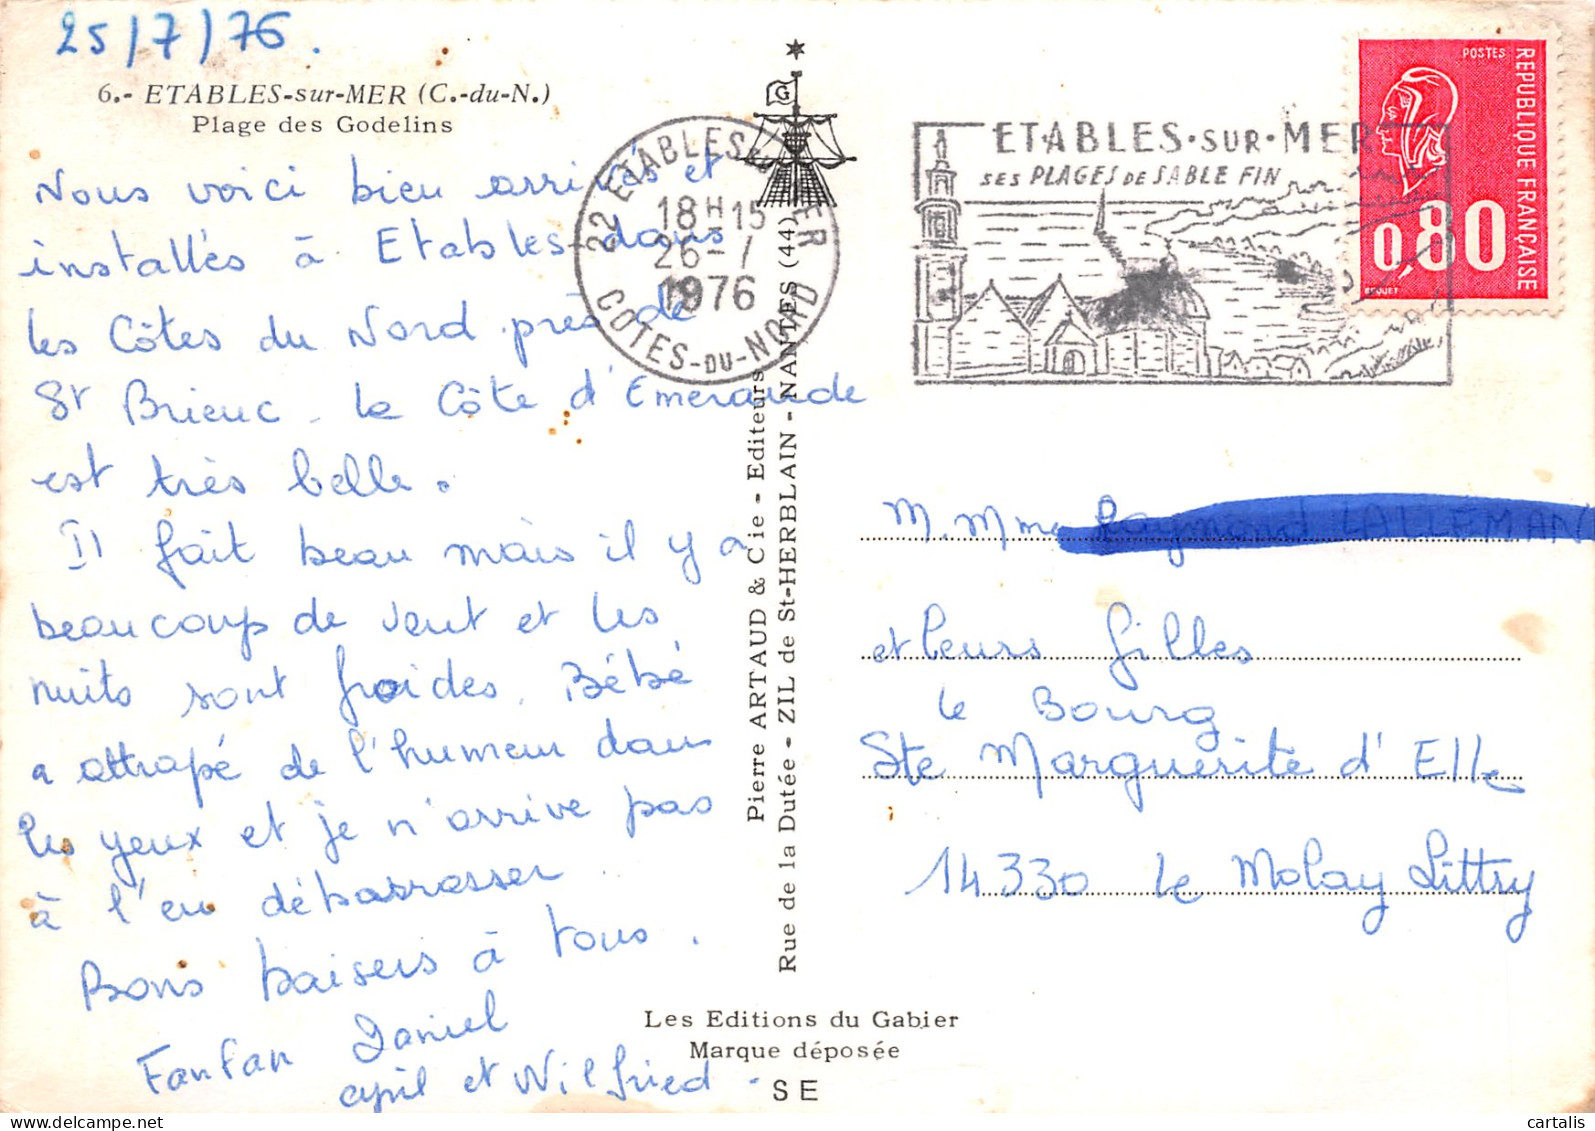 25/7/76.
6.- ETABLES-sur-MER (C.-du-N.)
Plage des Godelins
Nous voici bien arrivés et
installés à Etables dans
les Côtes du Nord près de
St Brieuc. la Côte d'Emeraude
est très belle.
Il fait beau mais il y a
beaucoup de vent et les
nuits sont froides. Bébé
a attrapé de l'humeur dans
les yeux et je n'arrive pas
à l'en débarrasser.
Bons baisers à tous.
Fanfan Daniel
cyril et Wilfried.
G
22 ETABLES MER
18H15
26-7
1976
COTES-DU-NORD
ETABLES.SUR.MER
SES PLAGES DE SABLE FIN
POSTES
REPUBLIQUE FRANÇAISE
0,80
BEQUET
Pierre ARTAUD & Cie - Editeurs
Rue de la Dutée - ZIL de St-HERBLAIN - NANTES (44)
M. Mme Raymond LALLEMAN
et leurs filles
le Bourg
Ste Marguerite d'Elle
14330 le Molay Littry
Les Editions du Gabier
Marque déposée
SE
cartalis